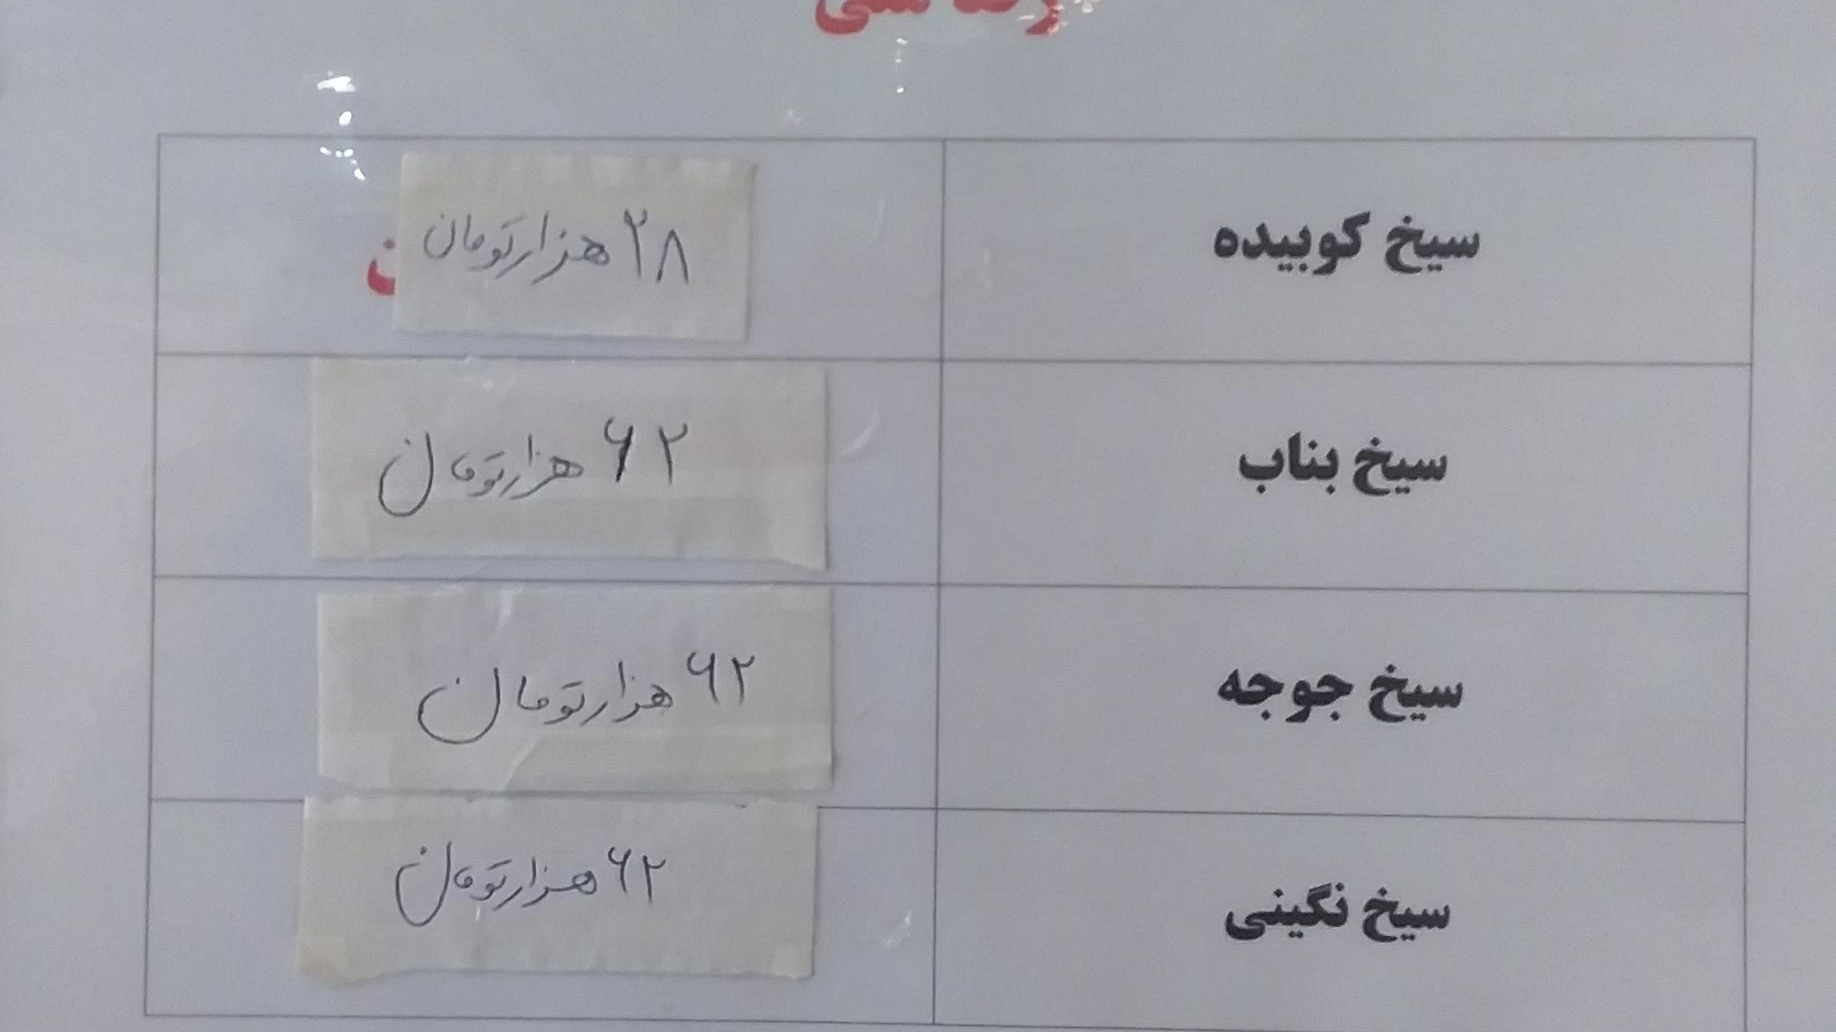 سیخ کوبیده ۲۸ هزارتومان
سیخ بناب ۶۲ هزارتومان
سیخ جوجه ۶۲ هزارتومان
سیخ نگینی ۶۲ هزارتومان